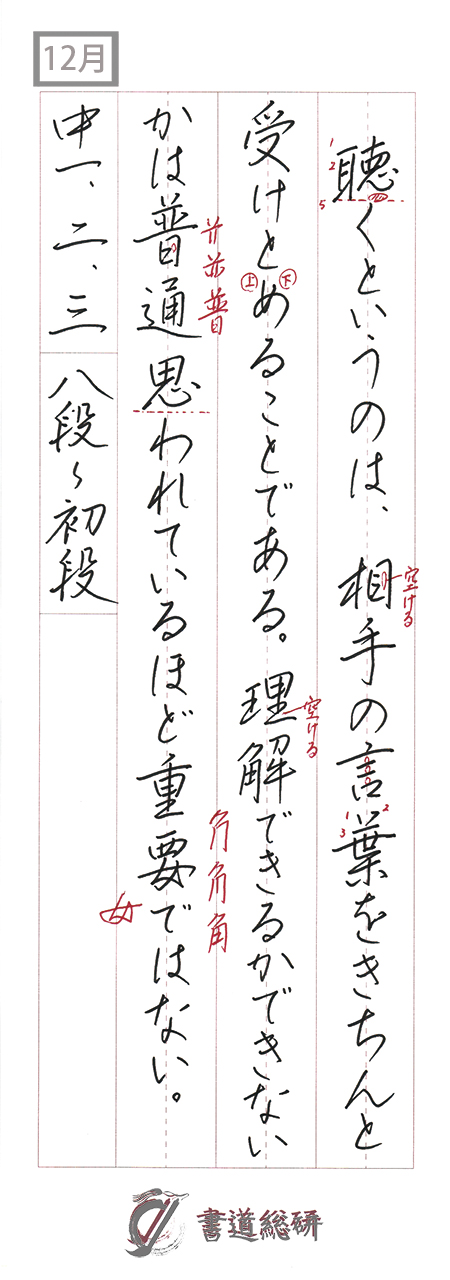 12月
聴くというのは、相手の言葉をきちんと
受けとめることである。理解できるかできない
かは普通思われているほど重要ではない。
中一、二、三 八段〜初段
1
2
5
空ける
1
2
3
上
下
空ける
角
普
女
書道総研